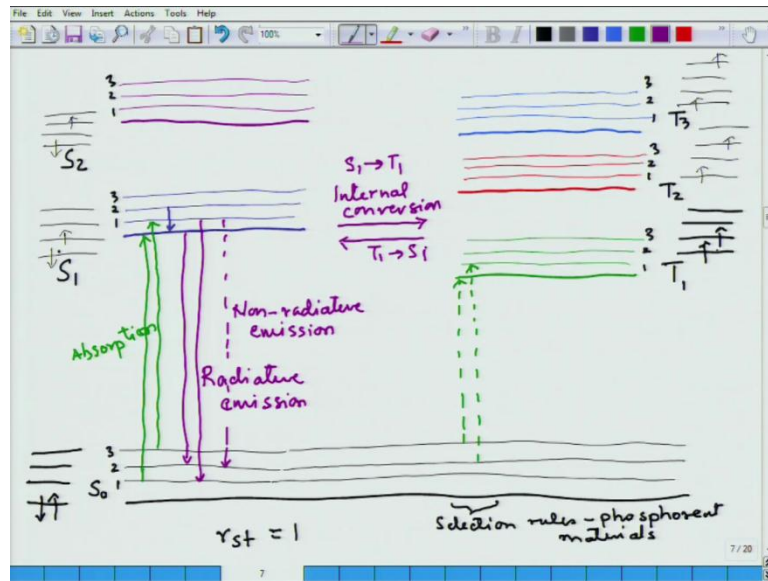 File Edit View Insert Actions Tools Help
100%
B I
3
2
1
S2
3
2
1
T3
3
2
1
T2
S1→T1
Internal
conversion
T1→S1
3
2
1
S1
3
2
1
T1
Absorption
Non-radiative
emission
Radiative
emission
3
2
1
S0
rst = 1
Selection rules-phosphorent
materials
7/20
7